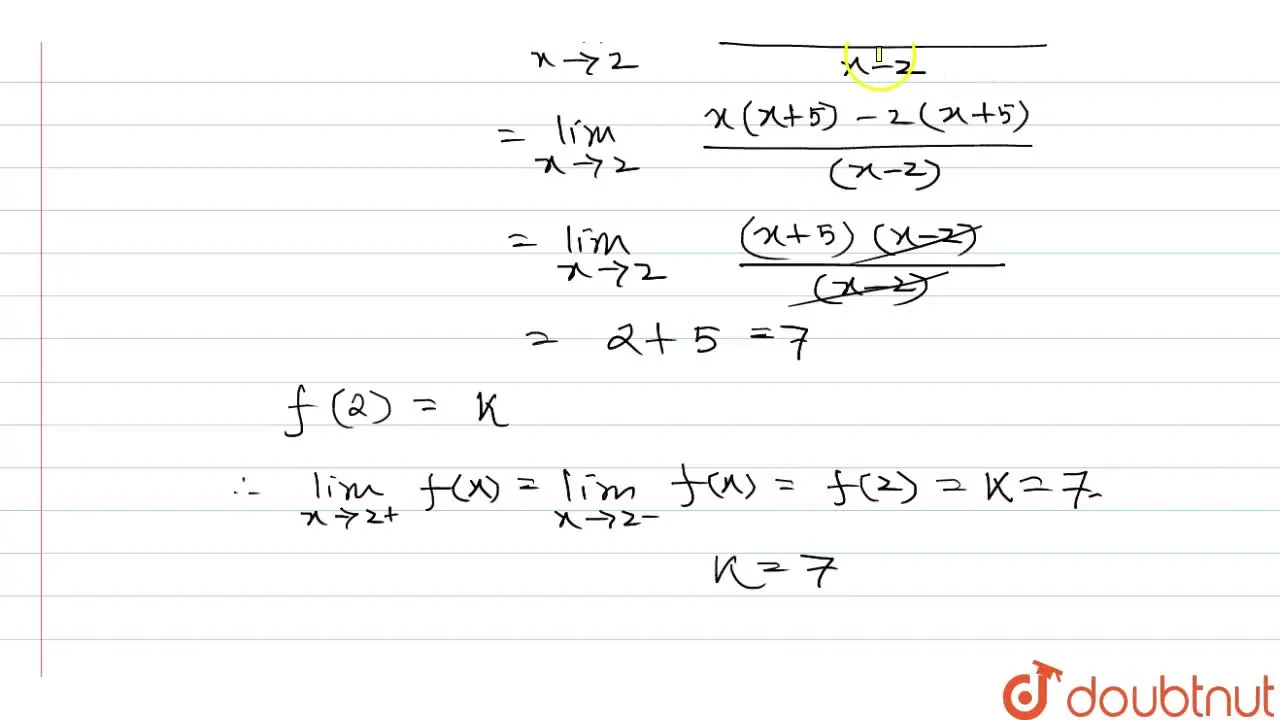 x→2 x-2
= lim x→2 x(x+5) - 2(x+5) / (x-2)
= lim x→2 (x+5)(x-2) / (x-2)
= 2+5 = 7
f(2) = K
∴ lim x→2+ f(x) = lim x→2- f(x) = f(2) = K = 7
K = 7
doubtnut